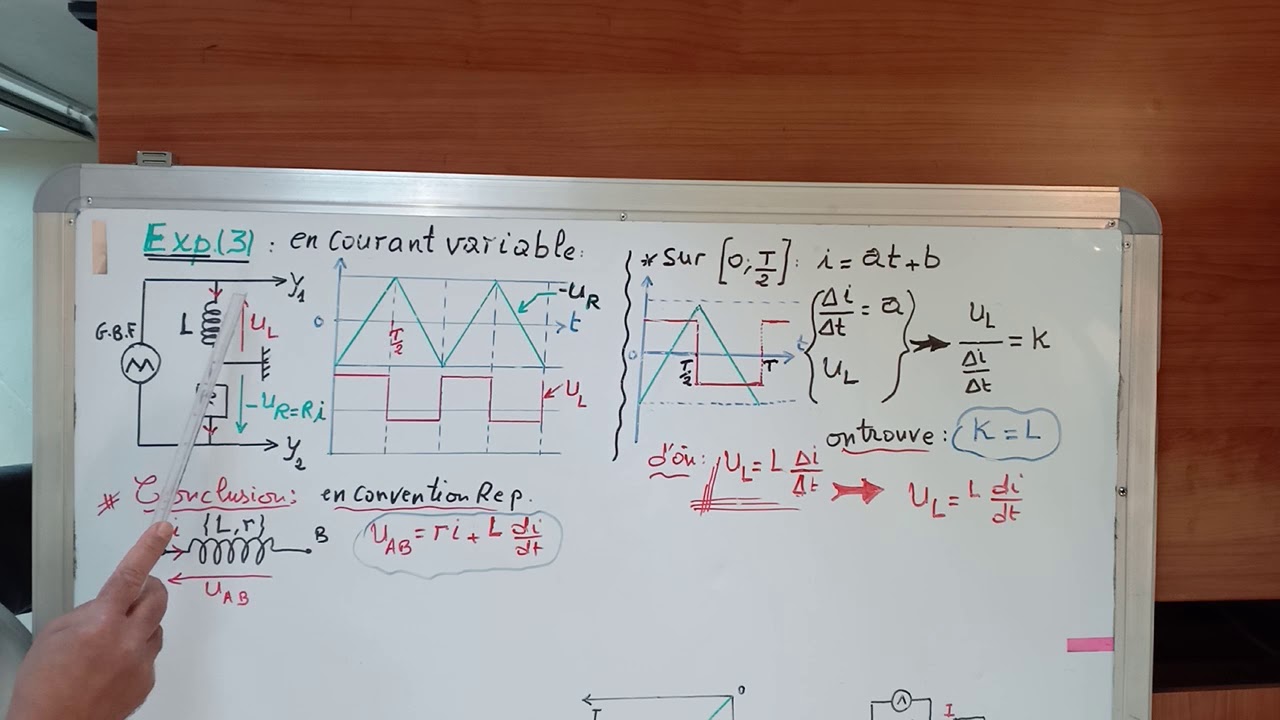 Exp.(3) : en courant variable:
Y1
G.B.F
L
UL
-UR=Ri
Y2
0
T/2
-UR
t
UL
* Sur [0; T/2] : i = at+b
0
T/2
T
t
{ Δi/Δt = a
UL } → UL / (Δi/Δt) = K
on trouve : K = L
d'où : UL = L Δi/Δt → UL = L di/dt
* Conclusion: en Convention Rep.
i {L,r} B
UAB
UAB = ri + L di/dt
0
T
A
I